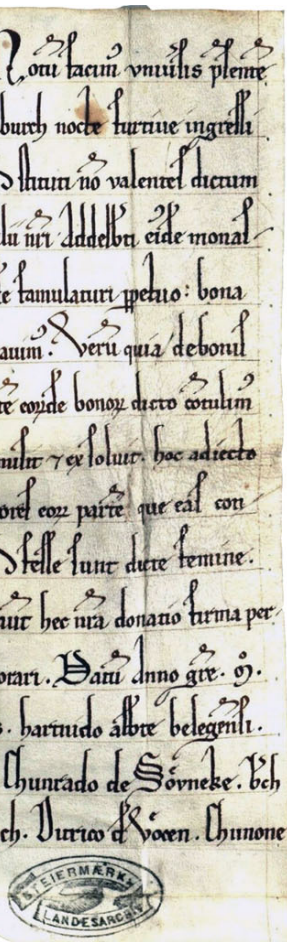 Notū facim⁹ vniu̾sis p̄sente
burch nocte furtiue ingressi
stituti nō valentes dictum
eidē monas
e famulaturi ppetuo: bona
auim⁹. Verū quia de bonis
te eoꝛde bonoꝝ dicto cōtulim⁹
⁊ ex soluit. hoc adiecto
eoꝝ partē que eas con
esse sunt dicte femine.
uit hec nr̄a donatio firma per-
orari. Datū Anno gr̄e. M.
hartnido abb̄te belegēsi.
Chunrado de Sövneke. Vlch
ch. Ditrico de Vöcen. Chunone
STEIERMÆRK.
LANDESARCHIV